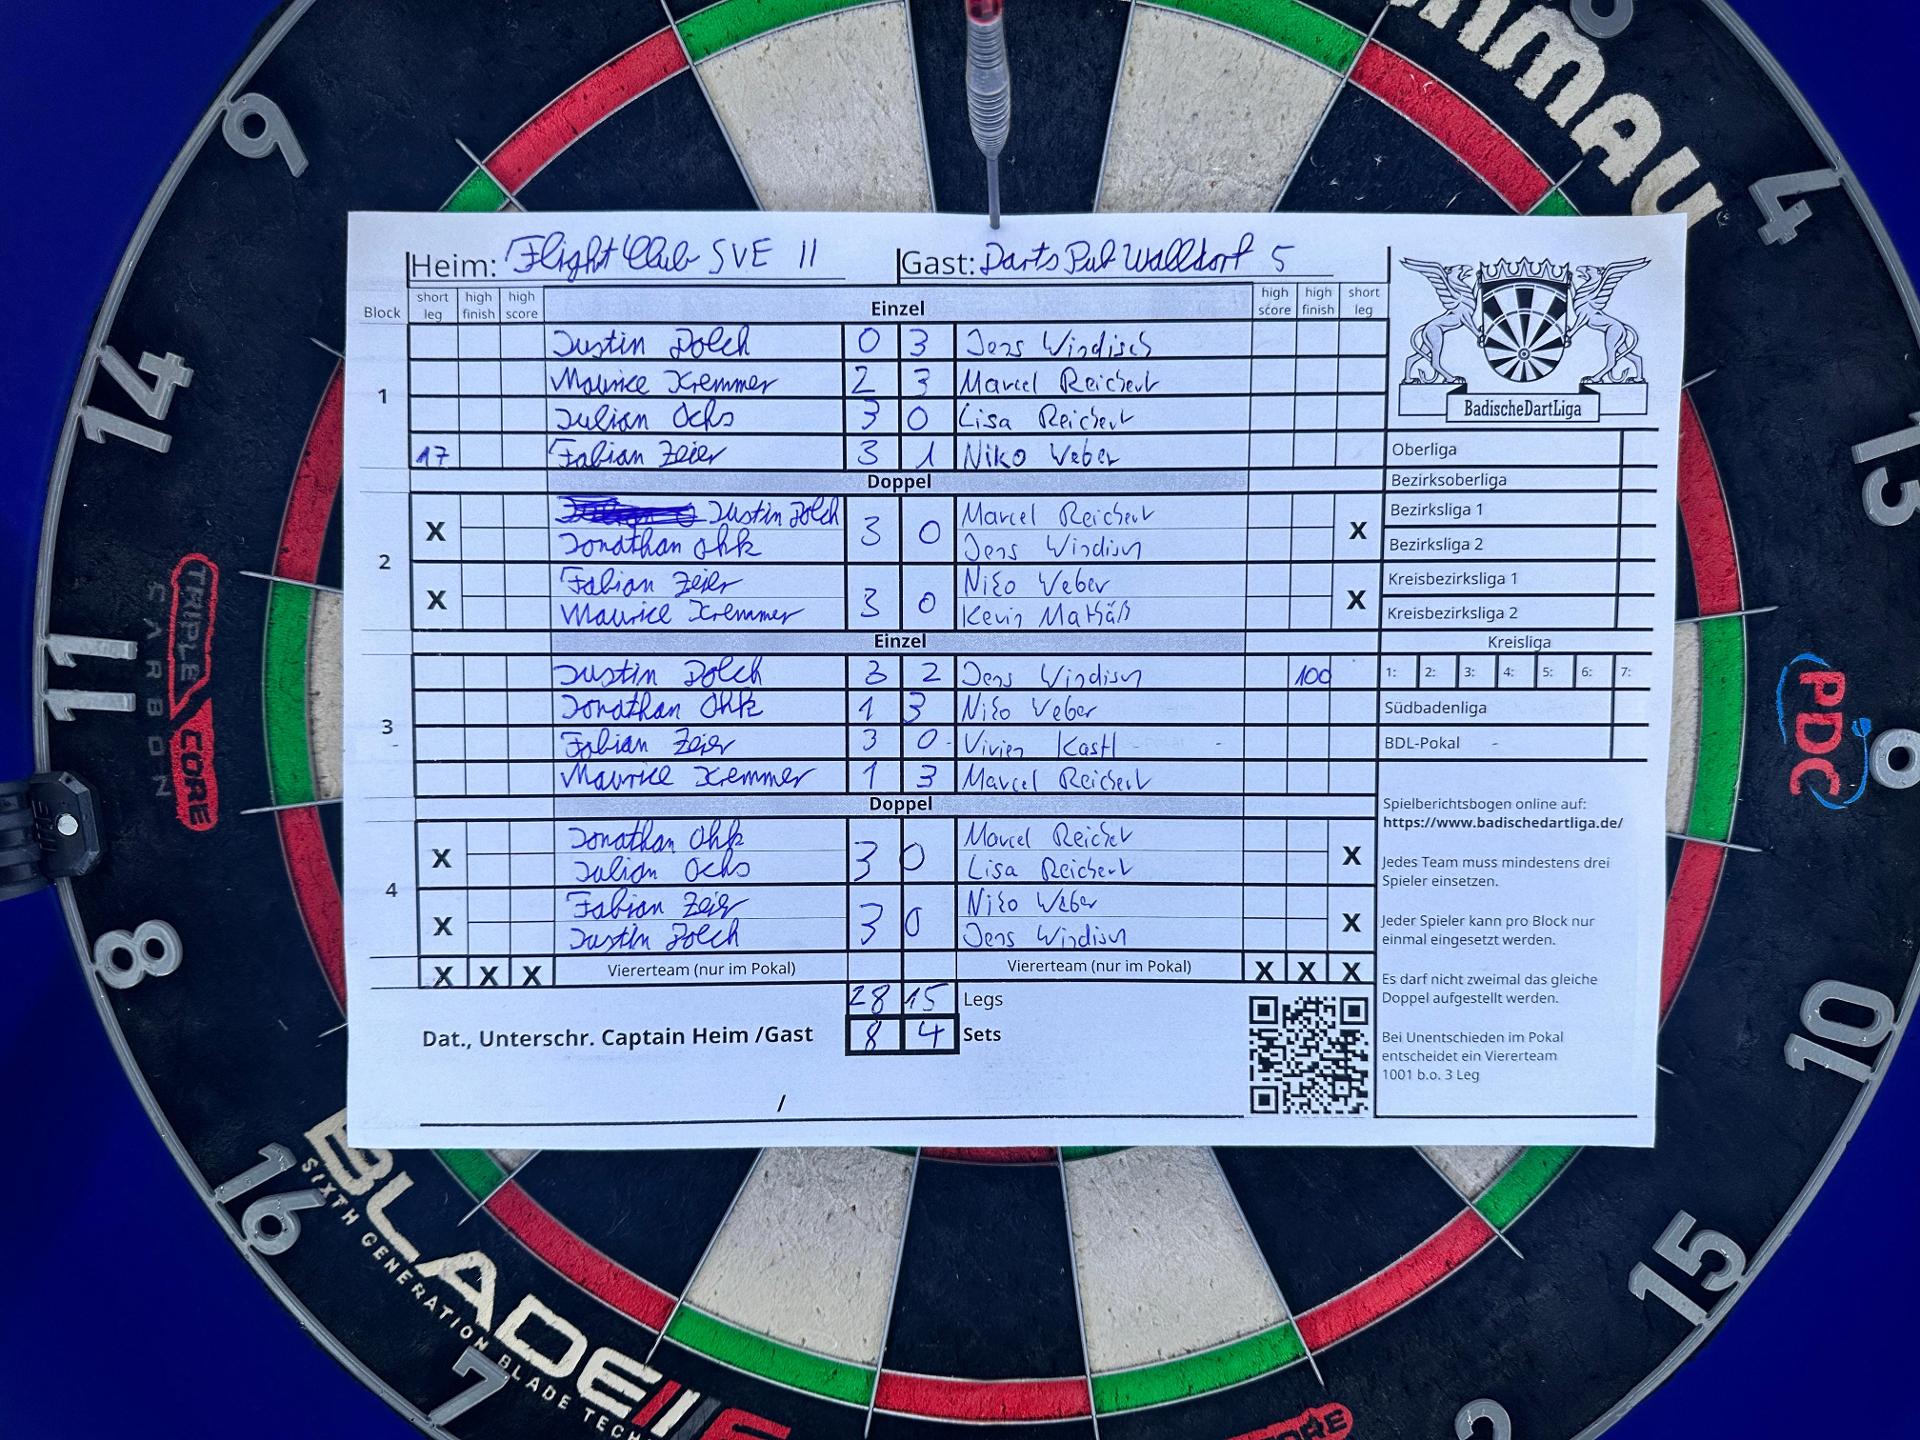 Heim: Flight Club SVE II Gast: Darts Pub Walldorf 5
Block short leg high finish high score Einzel high score high finish short leg
1
Justin Dolch 0 3 Jens Windisch
Maurice Kremmer 2 3 Marcel Reichert
Julian Ochs 3 0 Lisa Reichert
17 Fabian Zeier 3 1 Niko Weber
Doppel
2
X Justin Dolch 3 0 Marcel Reichert X
Jonathan Ohk Jens Windisch
X Fabian Zeier 3 0 Niko Weber X
Maurice Kremmer Kevin Mathäß
Einzel
3
Justin Dolch 3 2 Jens Windisch 100
Jonathan Ohk 1 3 Niko Weber
Fabian Zeier 3 0 Vivien Kastl
Maurice Kremmer 1 3 Marcel Reichert
Doppel
4
X Jonathan Ohk 3 0 Marcel Reichert X
Julian Ochs Lisa Reichert
X Fabian Zeier 3 0 Niko Weber X
Justin Dolch Jens Windisch
X X X Viererteam (nur im Pokal) Viererteam (nur im Pokal) X X X
28 15 Legs
Dat., Unterschr. Captain Heim /Gast 8 4 Sets
/
BadischeDartLiga
Oberliga
Bezirksoberliga
Bezirksliga 1
Bezirksliga 2
Kreisbezirksliga 1
Kreisbezirksliga 2
Kreisliga
1: 2: 3: 4: 5: 6: 7:
Südbadenliga
BDL-Pokal
Spielberichtsbogen online auf:
https://www.badischedartliga.de/
Jedes Team muss mindestens drei
Spieler einsetzen.
Jeder Spieler kann pro Block nur
einmal eingesetzt werden.
Es darf nicht zweimal das gleiche
Doppel aufgestellt werden.
Bei Unentschieden im Pokal
entscheidet ein Viererteam
1001 b.o. 3 Leg
9
14
11
8
16
7
4
13
10
15
2
TRIPLE CORE
CARBON
PDC
BLADE
SIXTH GENERATION BLADE